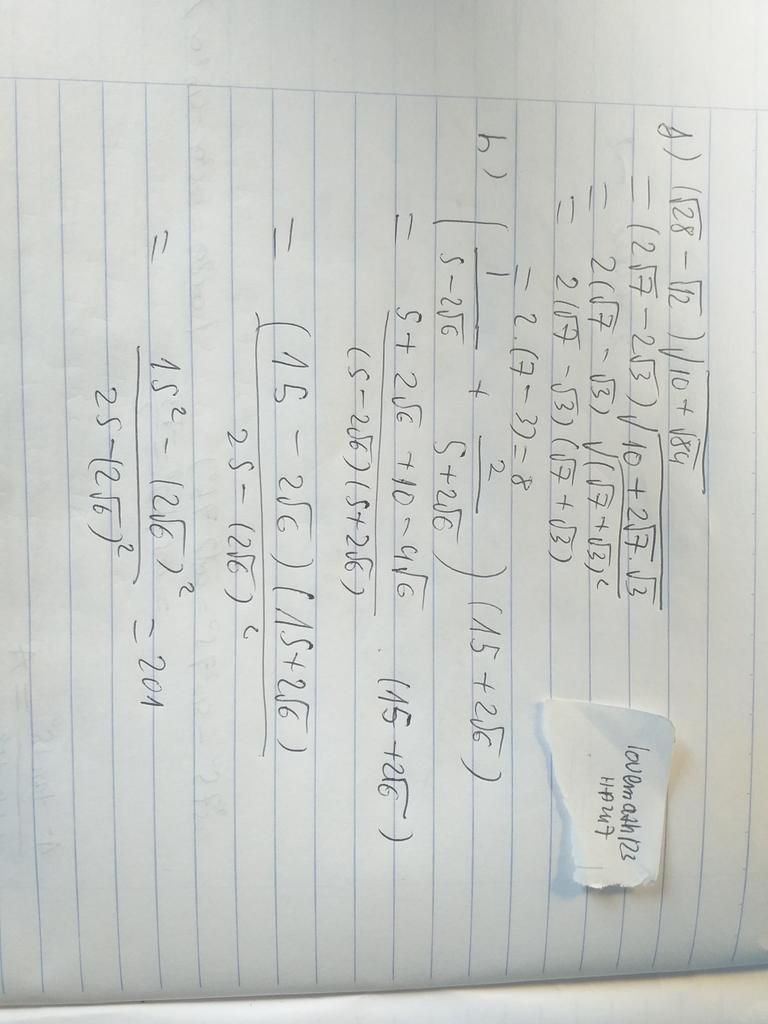 g) (√28 - √12)√10+√84
= (2√7 - 2√3)√10+2√7.√3
= 2(√7 - √3)√(√7+√3)²
= 2(√7 - √3)(√7+√3)
= 2.(7-3)=8
h) (1/(5-2√6) + 2/(5+2√6))(15+2√6)
= (5+2√6+10-4√6)/((5-2√6)(5+2√6)) . (15+2√6)
= ((15-2√6)(15+2√6))/(25-(2√6)²)
= (15²-(2√6)²)/(25-(2√6)²) = 201
lovemath123
HĐ247